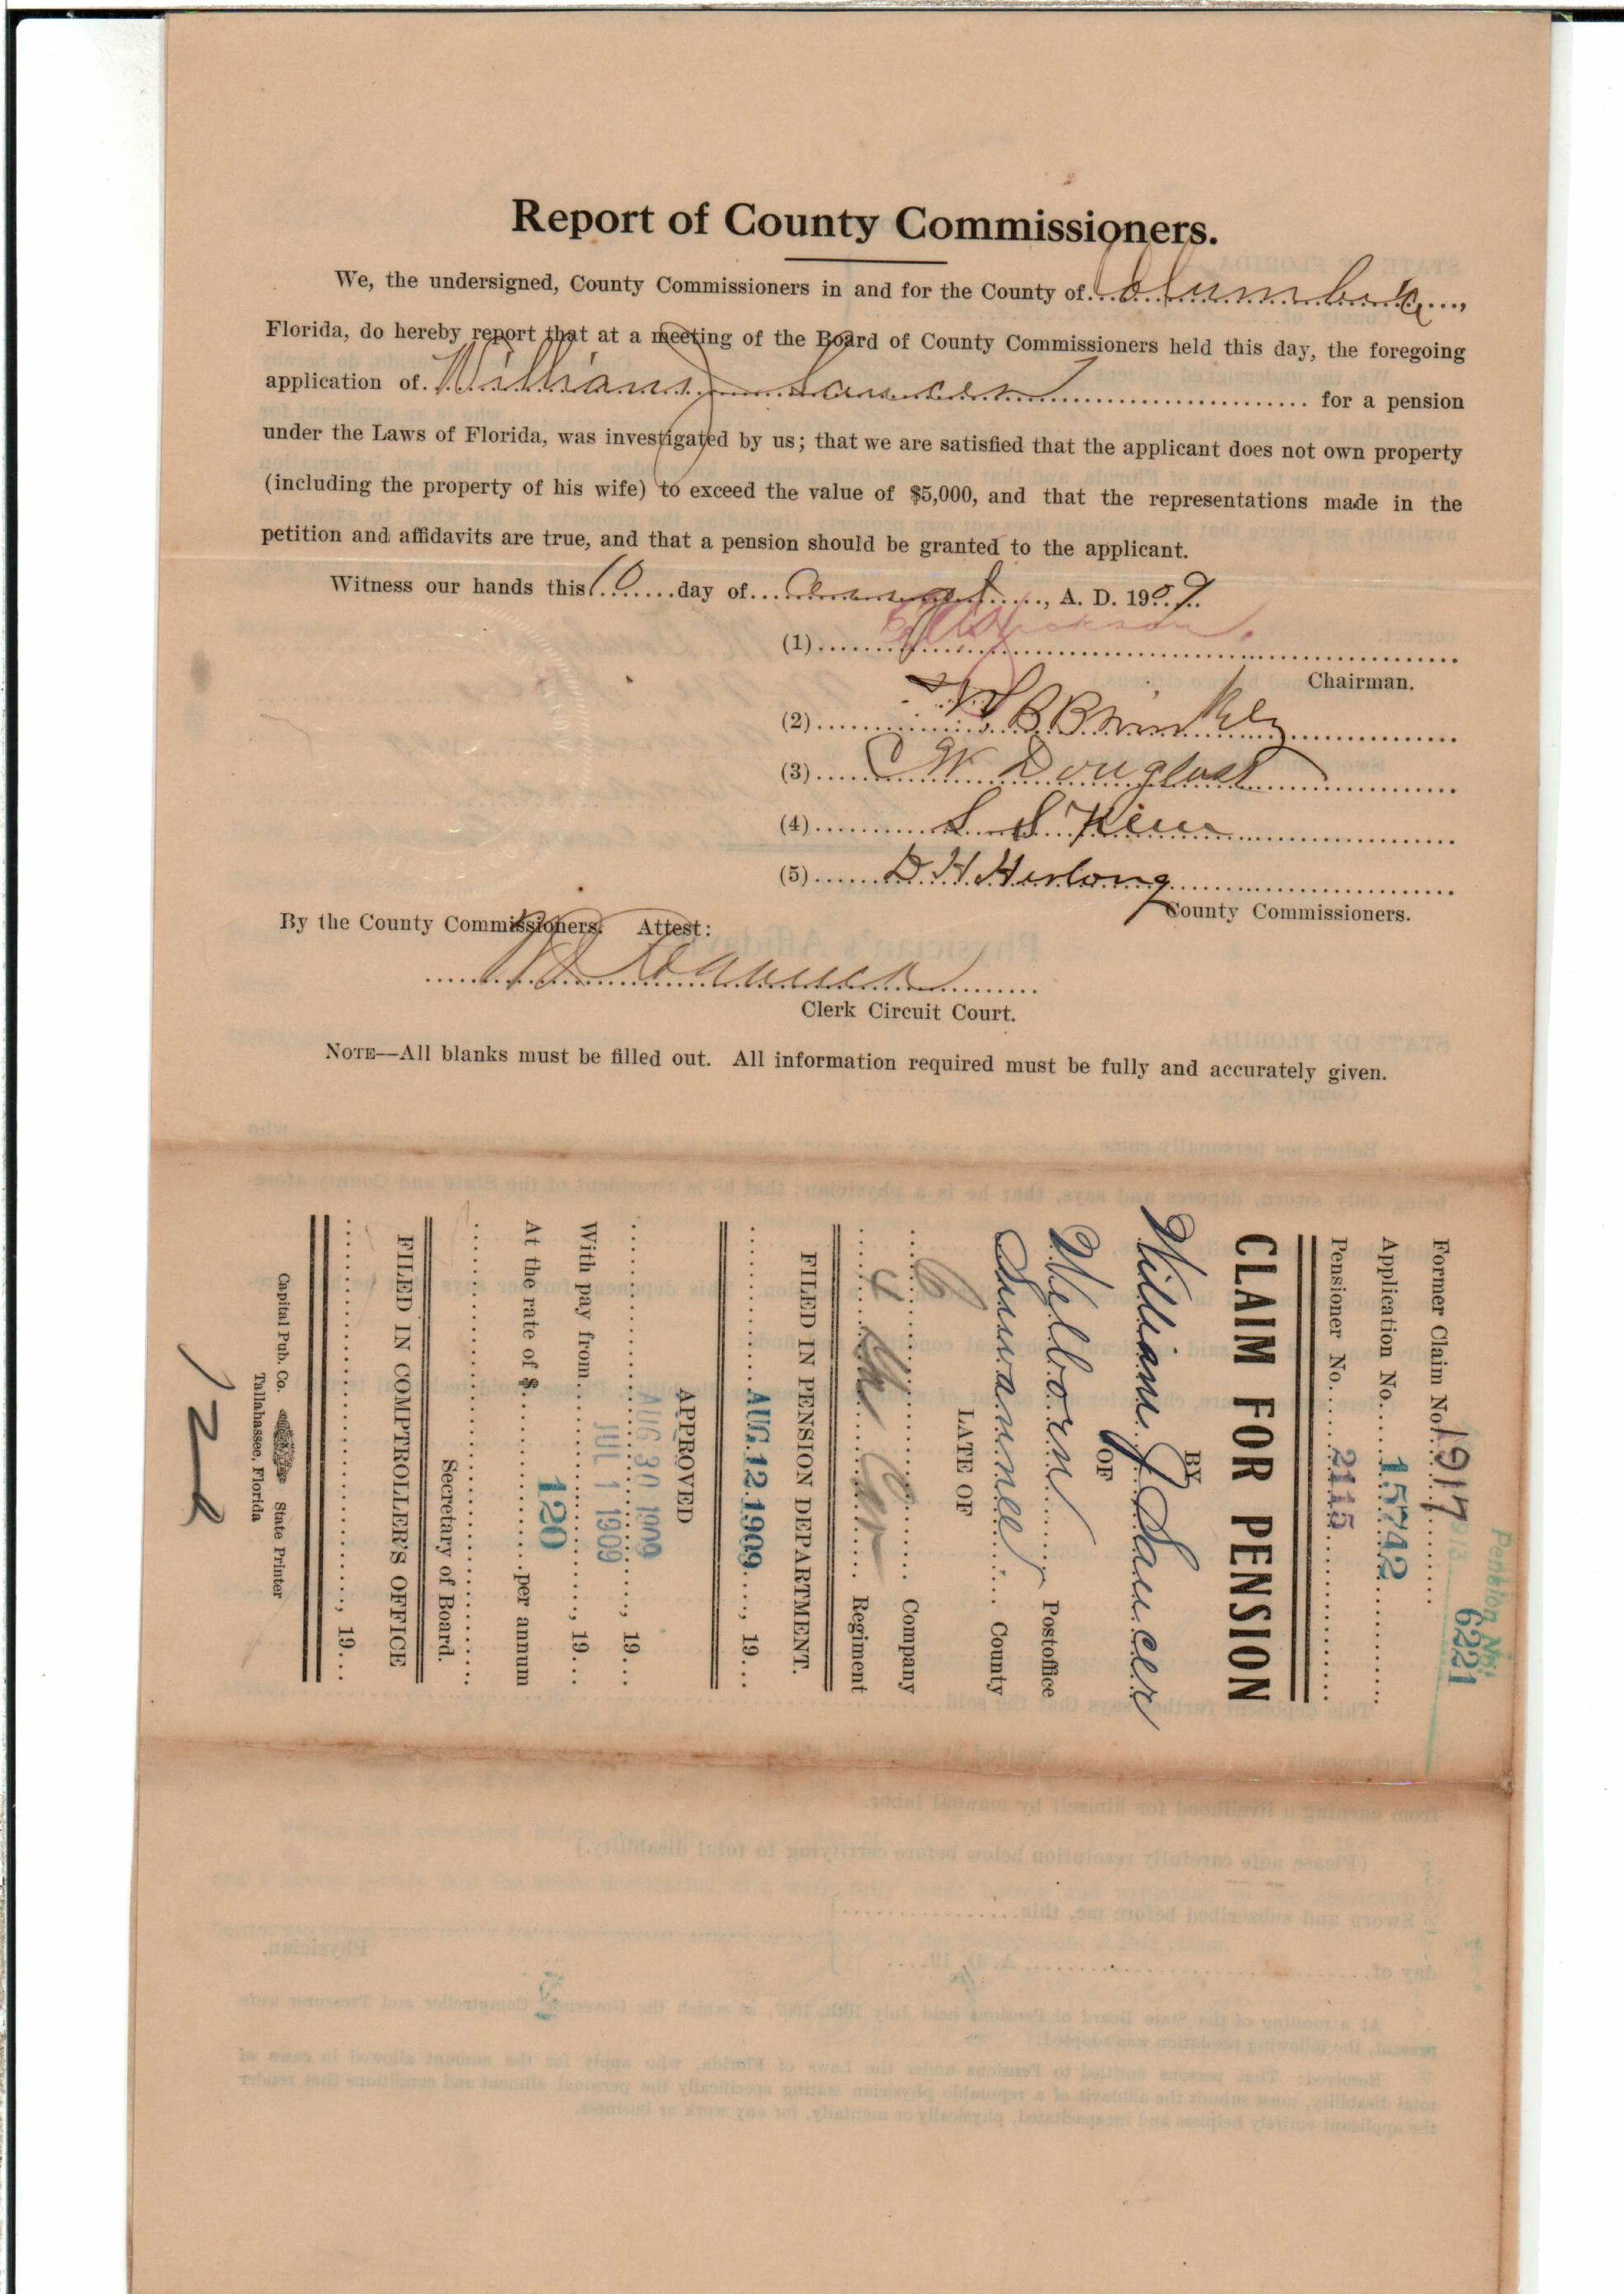 Report of County Commissioners.
We, the undersigned, County Commissioners in and for the County of Columbia,
Florida, do hereby report that at a meeting of the Board of County Commissioners held this day, the foregoing
application of William J Saucer for a pension
under the Laws of Florida, was investigated by us; that we are satisfied that the applicant does not own property
(including the property of his wife) to exceed the value of $5,000, and that the representations made in the
petition and affidavits are true, and that a pension should be granted to the applicant.
Witness our hands this 10 day of August, A. D. 1909.
(1)
Chairman.
(2) B Brinkley
(3) W Douglass
(4) S S
(5) D H Herlong
County Commissioners.
By the County Commissioners. Attest:
Clerk Circuit Court.
NOTE—All blanks must be filled out. All information required must be fully and accurately given.
Pension No.
6221
Former Claim No. 1917
Application No. 15742
Pensioner No. 2115
CLAIM FOR PENSION
BY
William J Saucer
OF
Welborn Postoffice
Suwannee County
LATE OF
C Company
4 Regiment
FILED IN PENSION DEPARTMENT.
AUG 12 1909, 19
APPROVED
AUG 30 1909, 19
With pay from JUL 1 1909, 19
At the rate of $ 120 per annum
Secretary of Board.
FILED IN COMPTROLLER'S OFFICE
, 19
Capital Pub. Co. State Printer
Tallahassee, Florida